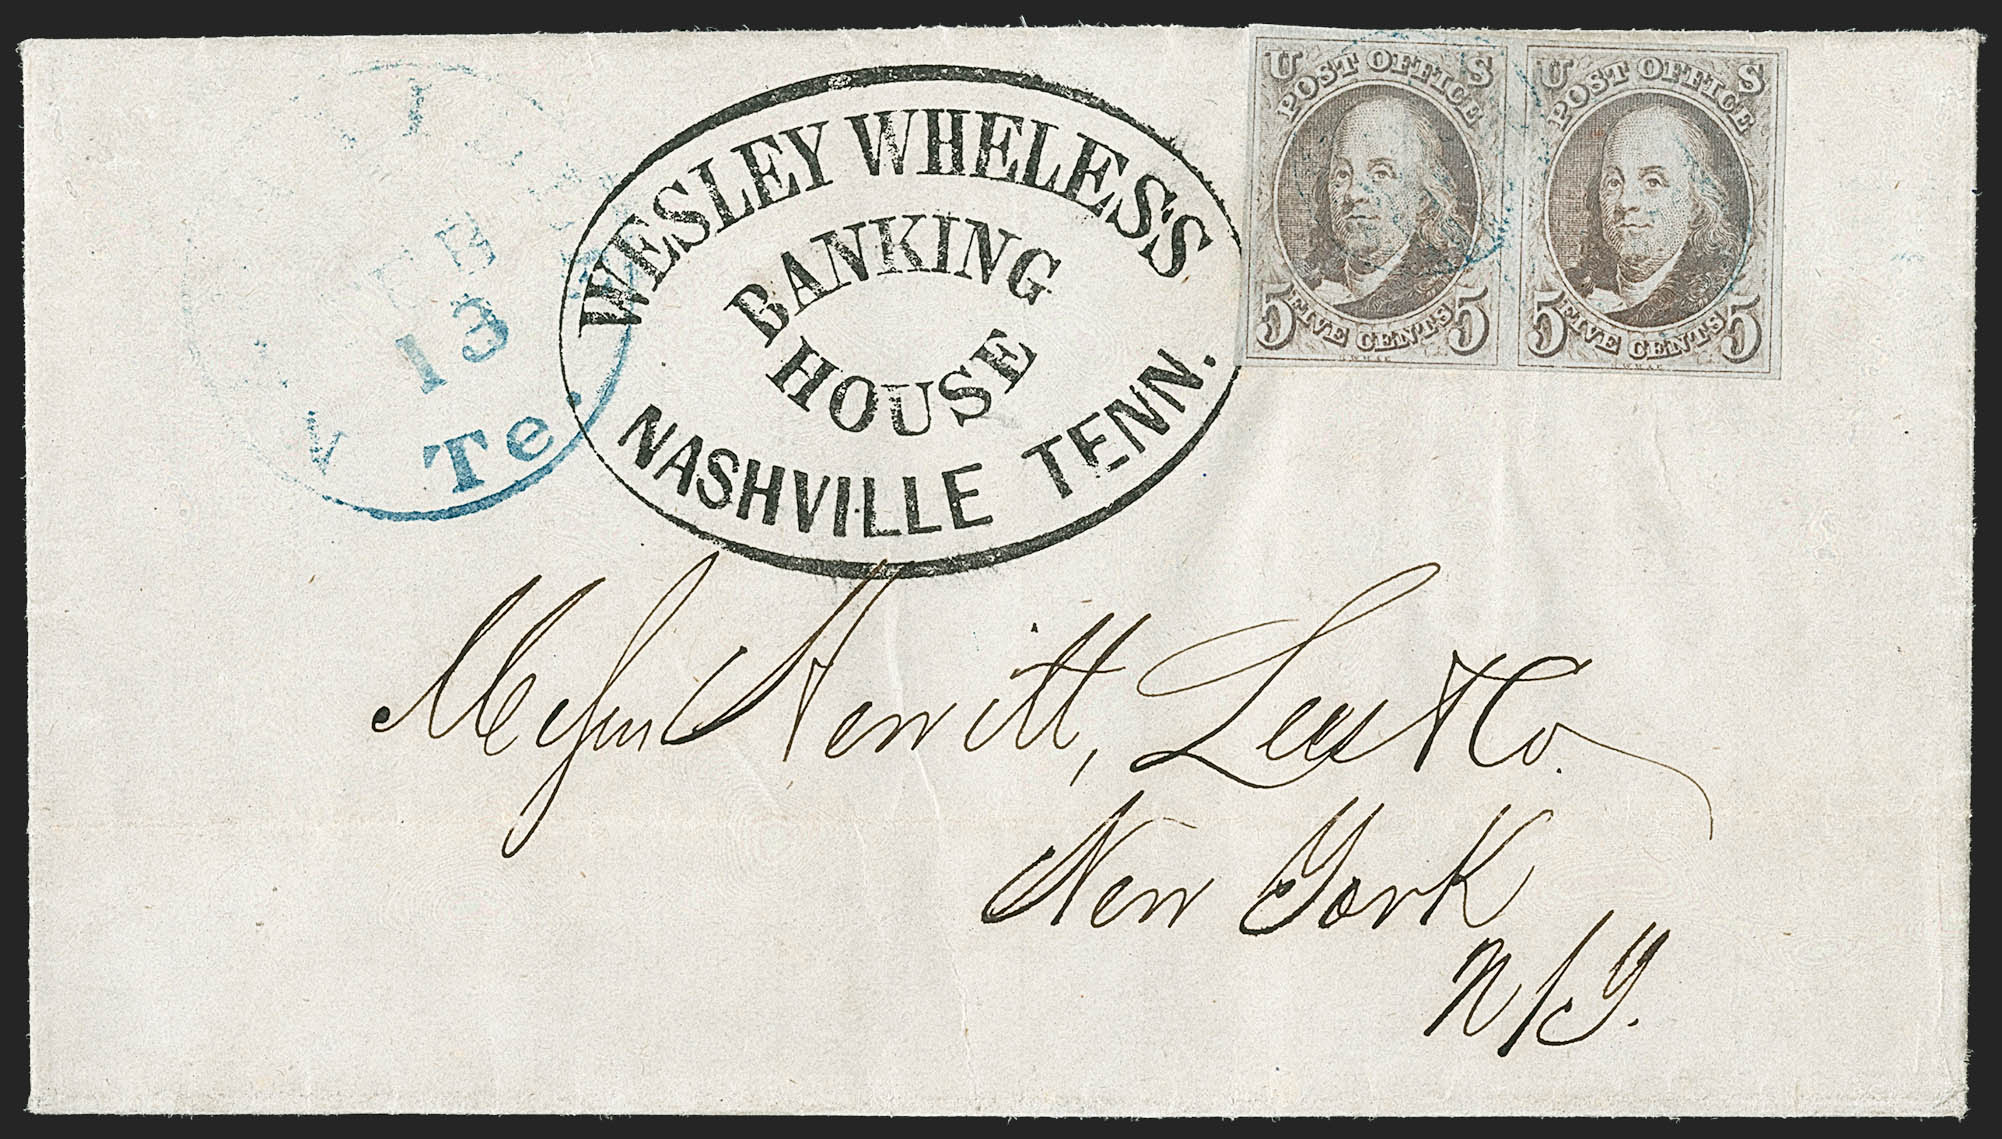 FEB
13
Te.
WESLEY WHELESS
BANKING
HOUSE
NASHVILLE TENN.
U S
POST OFFICE
5 FIVE CENTS 5
U S
POST OFFICE
5 FIVE CENTS 5
Messrs Hewitt, Lees & Co.
New York
N.Y.